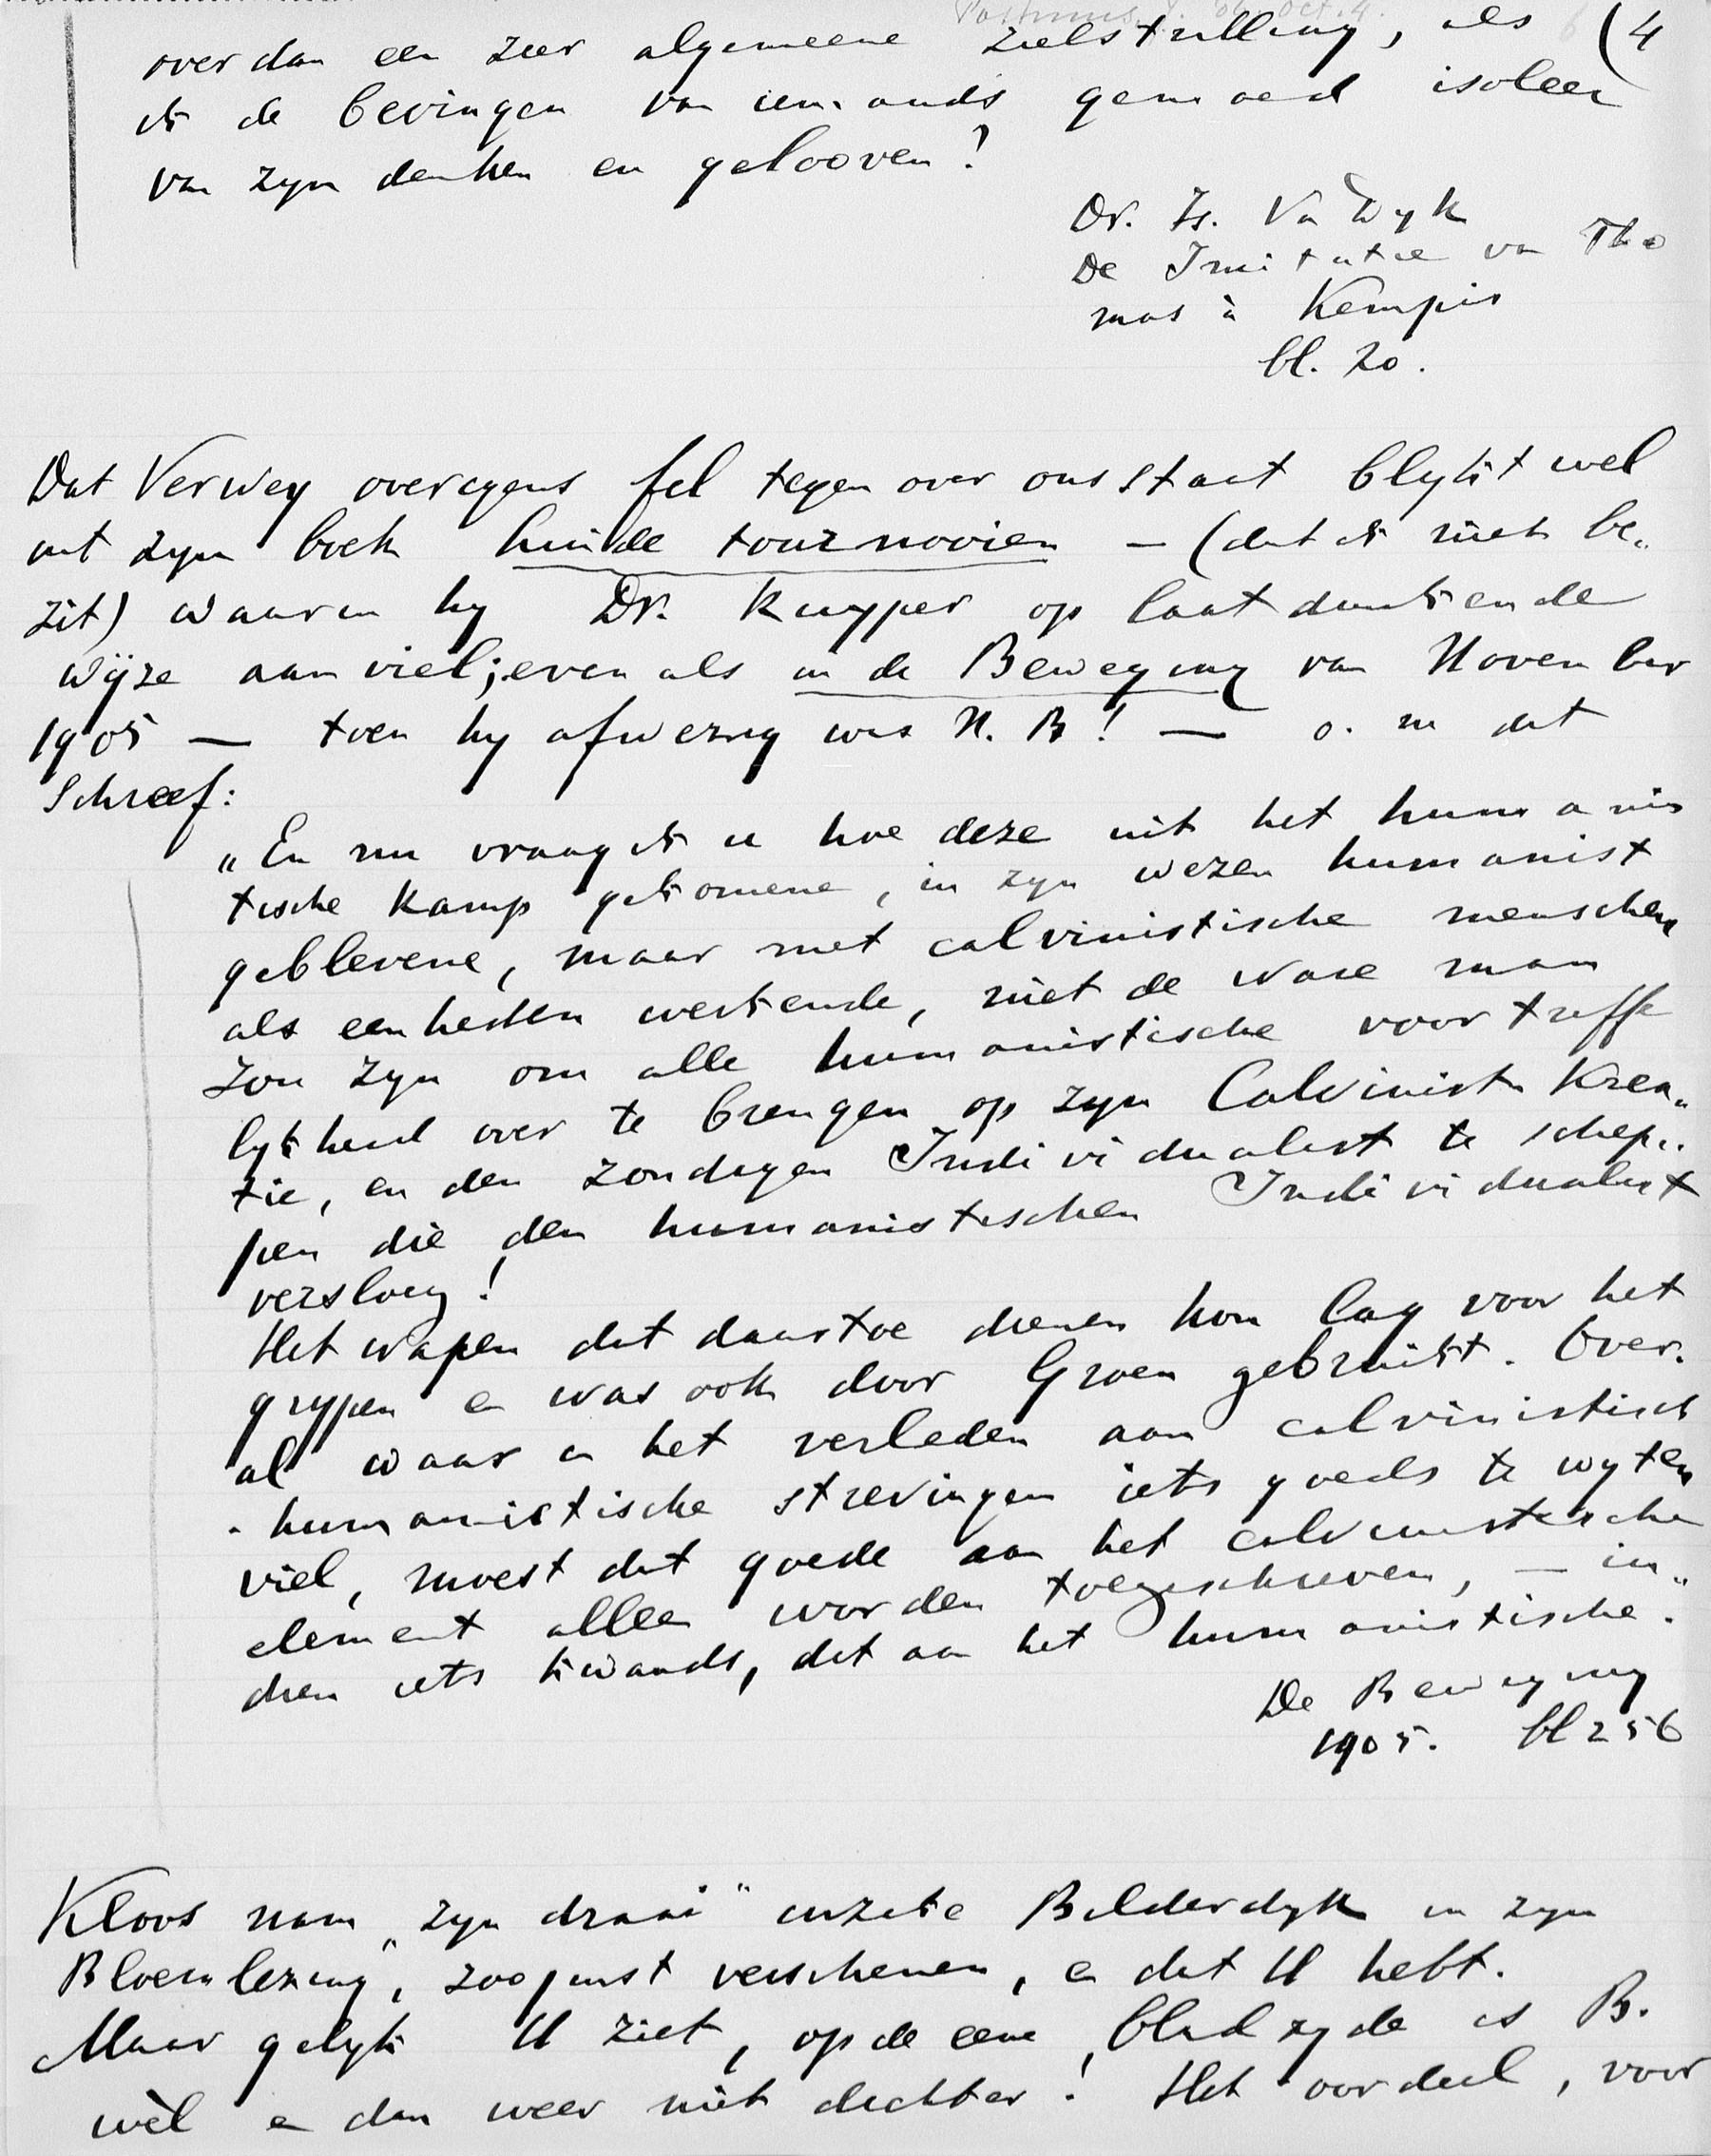 Postmus, J. 06. Oct. 4.
over dan een zeer algemeene zielstrilling, als (4
ik de bevingen van iemands gemoed isoleer
van zyn denken en gelooven!
Dr. Is. Van Dyk
De Imitatie van Tho
mas à Kempis
bl. 20.
Dat Verwey overigens fel tegenover ons staat blykt wel
uit zyn boek luide tournooien – (dat ik niet be„
zit) waarin hy Dr. Kuyper op laatdunkende
wijze aanviel; evenals in de Beweging van November
1905 — toen hy afwezig was N.B! — o. m dat
schreef:
„En nu vraag ik u hoe deze uit het humanis
tische kamp gekomene, in zyn wezen humanist
geblevene, maar met calvinistische menschen
als eenheden werkende, niet de ware man
zou zyn om alle humanistische voortreffe
lykheid over te brengen op zyn Calvinisten Krea„
tie, en den zondagen Individualist te schep„
pen die den humanistischen Individualist
versloeg!
Het wapen dat daartoe dienen kon lag voor het
grypen en was ook door Groen gebruikt. Over.
al waar in het verleden aan calvinistisch
- humanistische strevingen iets goeds te wyten
viel, moest dat goede aan het calvinistische
element alleen worden toegeschreven, — in„
dien iets kwaads, dat aan het humanistische.
De Beweging
1905. bl 256
Kloos nam „zyn draai" inzake Bilderdyk in zyn
Bloemlezing, zoo juist verschenen, en dat U hebt.
Maar gelyk U ziet, op de eene bladzyde is B.
wèl en dan weer niet dichter! Het oordeel, voor